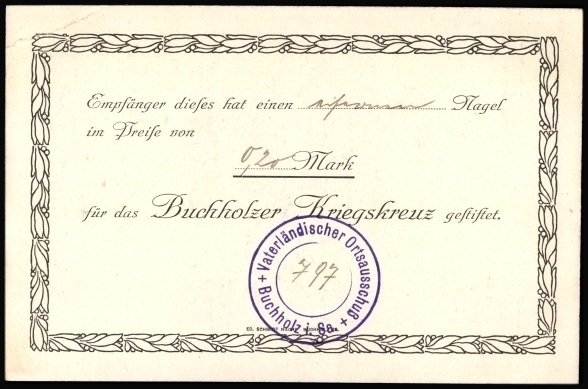 Empfänger dieses hat einen eisernen Nagel
im Preise von
0,20 Mark
für das Buchholzer Kriegskreuz gestiftet.
+ Vaterländischer Ortsausschuß +
Buchholz i. Sa.
797
ED. SCHMIDT